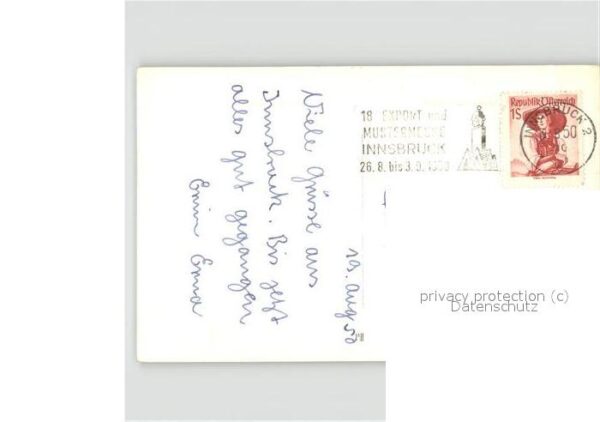 Viele Grüsse aus
Innsbruck. Bis jetzt
alles gut gegangen
Erwin Erna
19. Aug 50
18 EXPORT und
MUSTERMESSE
INNSBRUCK
26.8. bis 3.9.1950
Republik Österreich
1S
INNSBRUCK 2
50
privacy protection (c)
Datenschutz